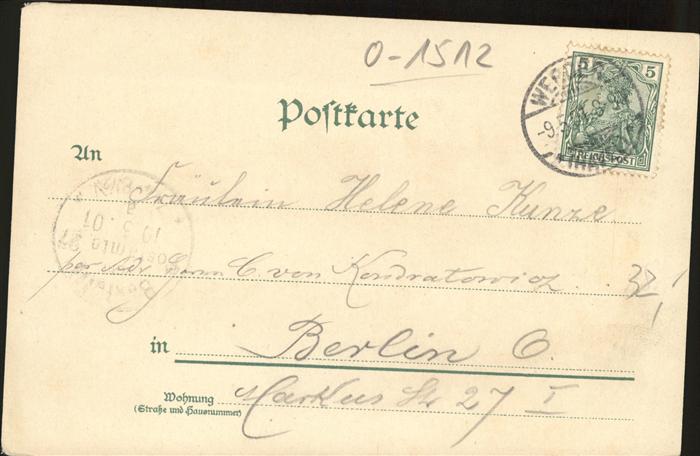 0-1512
5 5
REICHSPOST
Postkarte
An
Fräulein Helene Kunze
per Adr. Herrn C. von Kondratowicz
32!
in Berlin O.
Wohnung
(Straße und Hausnummer)
Markus Str 27 I